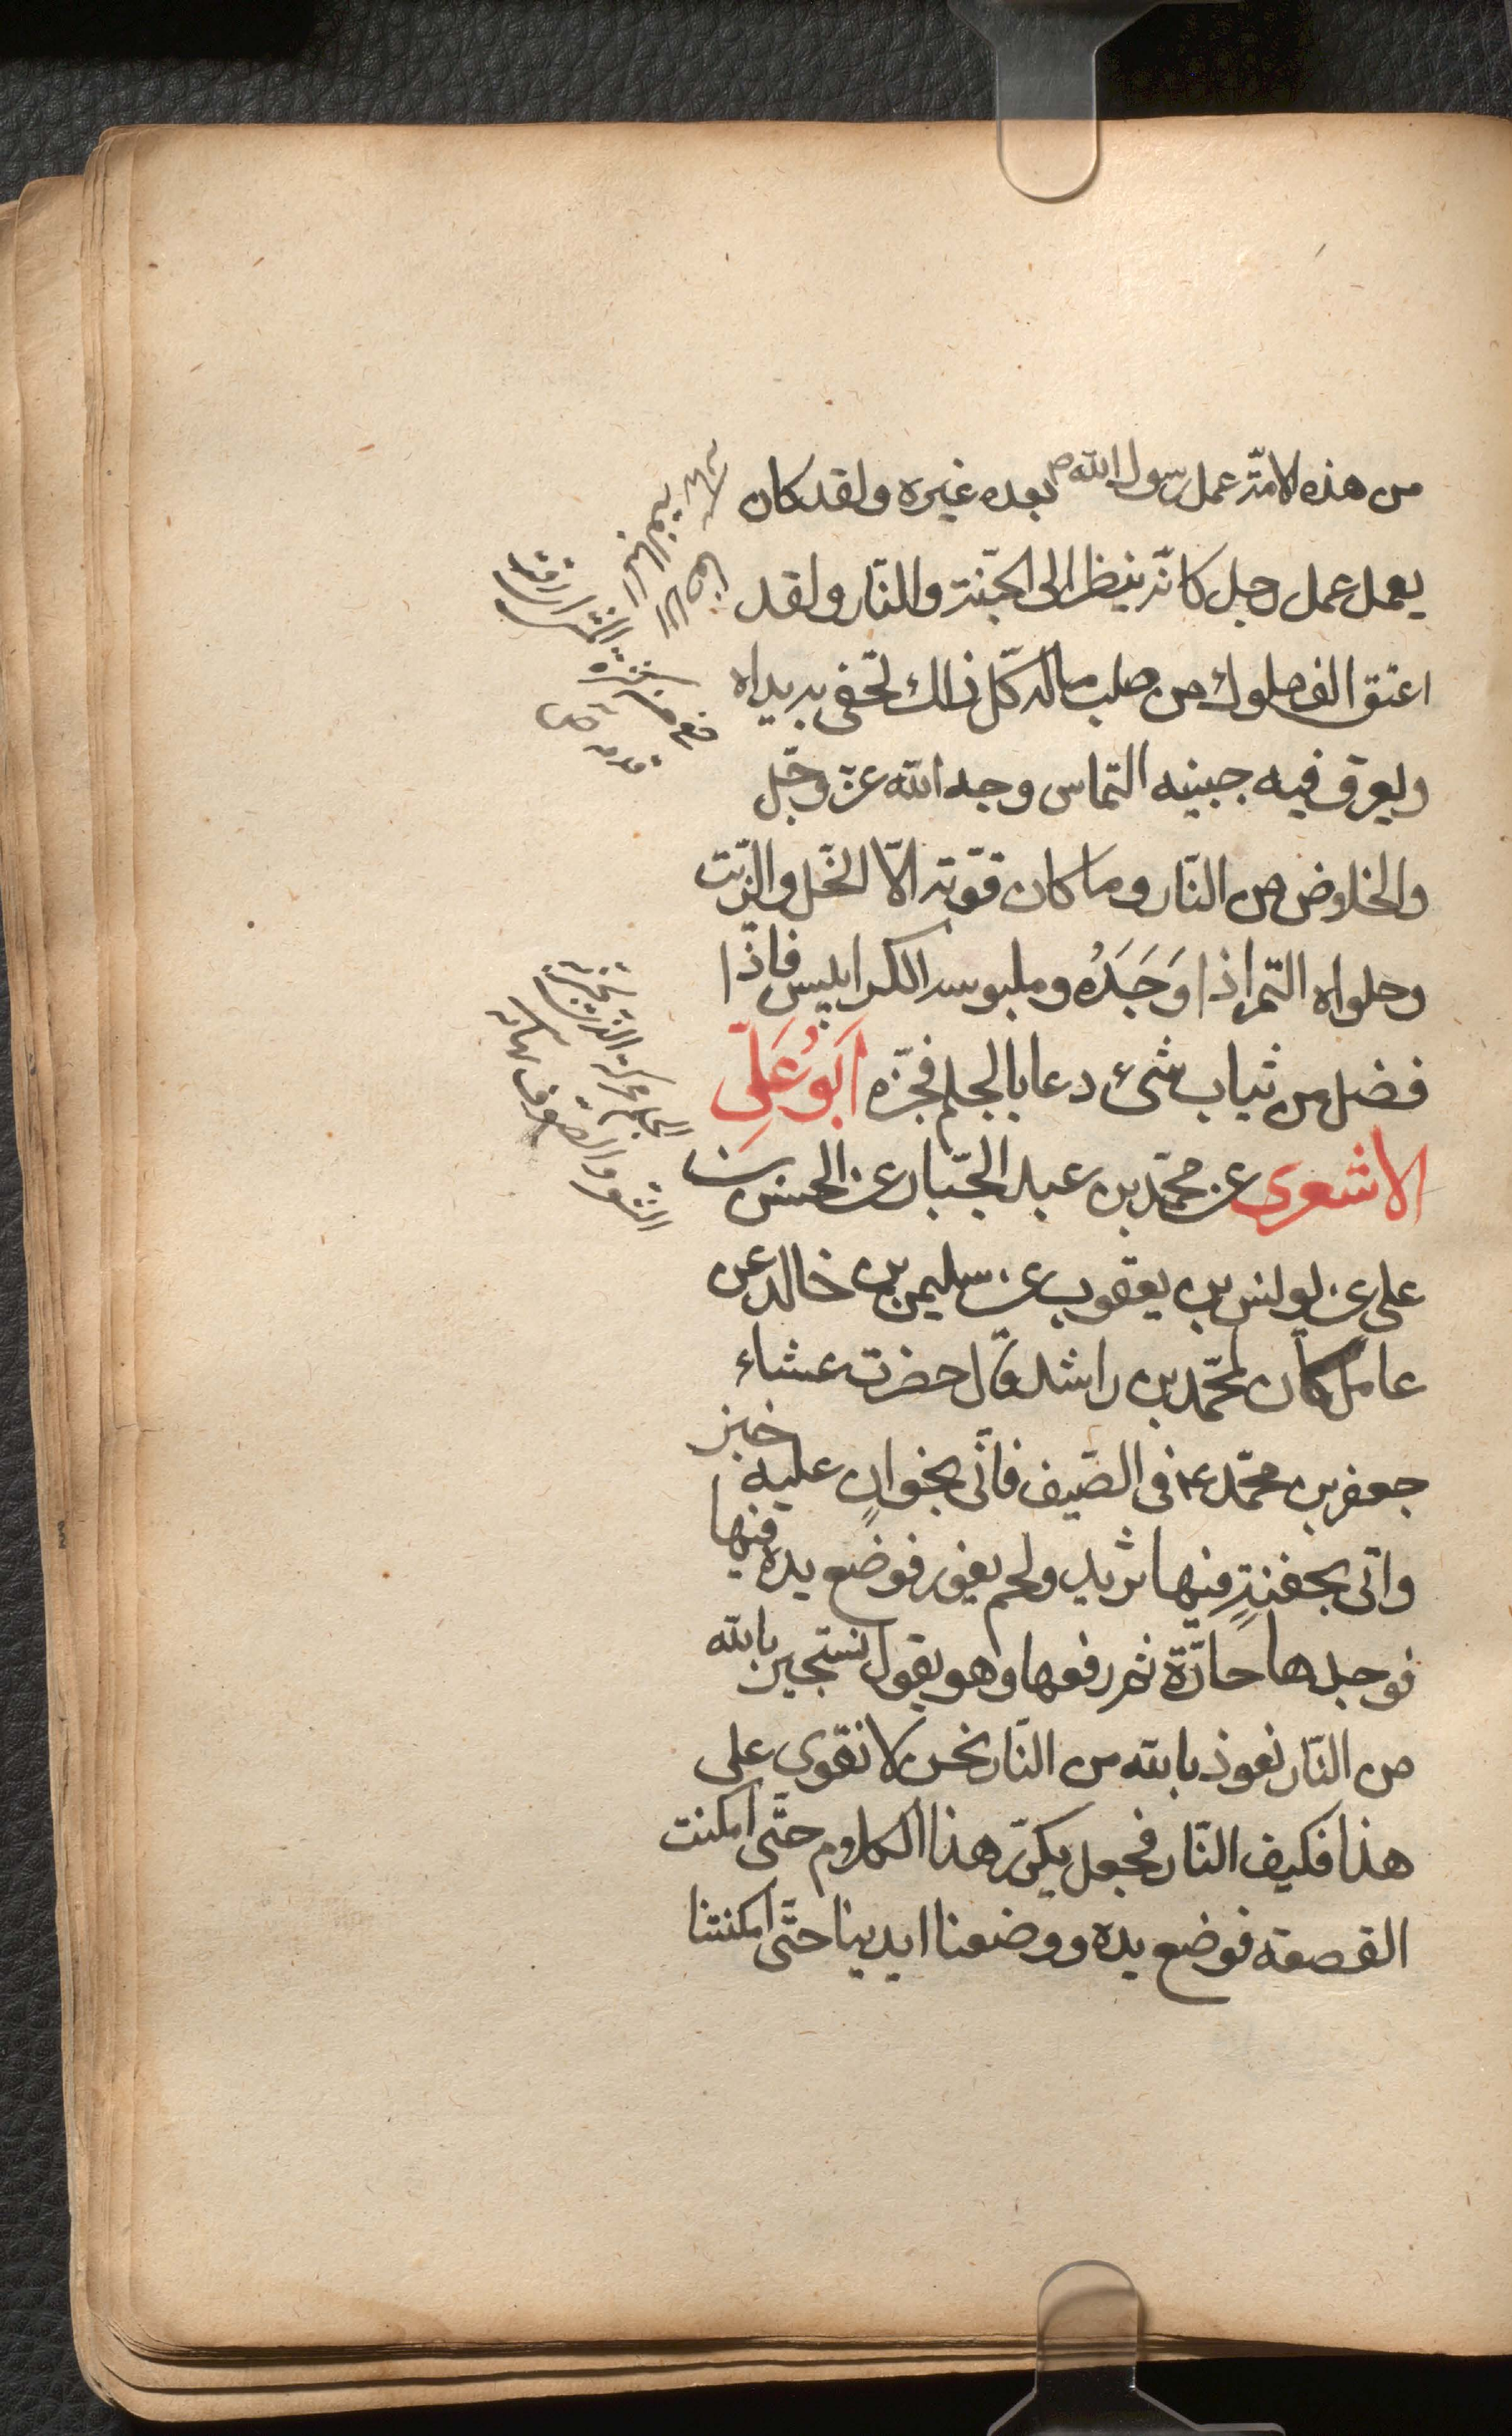 من هذه الامّة عمل رسول الله ص بعده غيره ولقد كان
يعمل عمل رجل كانّه ينظر الى الجنّة والنّار ولقد
اعتق الف مملوك من صلب ماله كلّ ذلك تحفى به يداه
ويعرق فيه جبينه التماس وجه الله عزّ وجلّ
والخلاص من النّار وما كان قوّته الّا الخلّ والزّيت
وحلواه التّمر اذا وَجَدَهُ وملبوسه الكرابيس فاذا
فضل من ثيابه شئ دعا بالجلم فجزّه اَبُو عَلِىّ
الاشعرى عن محمّد بن عبد الجبّار عن الحسن بن
على عن يونس بن يعقوب عن سليمن بن خالد عن
عامل كان لمحمّد بن راشد قال حضرت عشاء
جعفر بن محمّد ع فى الصّيف فاتى بخوانٍ عليه خبز
واتى بجفنةٍ فيها ثريد ولحم يفور فوضع يده فيها
فوجدها حارّة ثم رفعها وهو يقول نستجير بالله
من النّار نعوذ بالله من النّار نحن لا نقوى على
هذا فكيف النّار فجعل يكرّر هذا الكلام حتّى امكنت
القصعة فوضع يده ووضعنا ايدينا حتّى امكنتنا